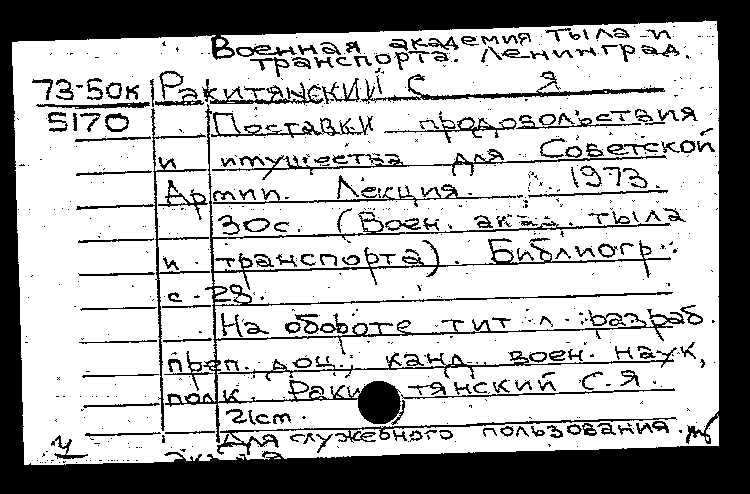 Военная академия тыла и
транспорта. Ленинград.
73-50к Ракитянский С Я
5170 Поставки продовольствия
и имущества для Советской
Армии. Лекция. Л. 1973.
30с. (Воен. акад. тыла
и транспорта). Библиогр.:
с. 28.
На обороте тит л. разраб.
преп. доц., канд. воен. наук,
полк. Ракитянский С.Я.
21см.
у Для служебного пользования.